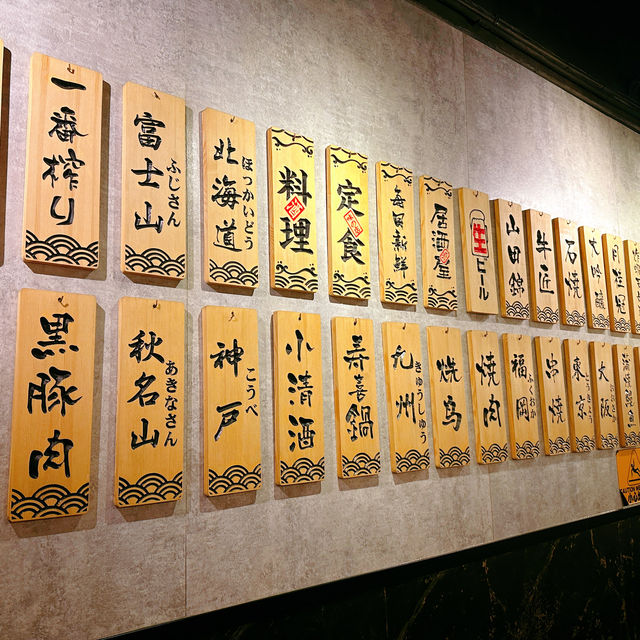 一番搾り
富士山
ふじさん
北海道
ほっかいどう
料理
定食
毎日新鮮
居酒屋
生ビール
山田錦
牛匠
石焼
大吟醸
黒豚肉
秋名山
あきなさん
神戸
こうべ
小清酒
寿喜鍋
九州
きゅうしゅう
焼鳥
焼肉
福岡
ふくおか
串焼
東京
大阪